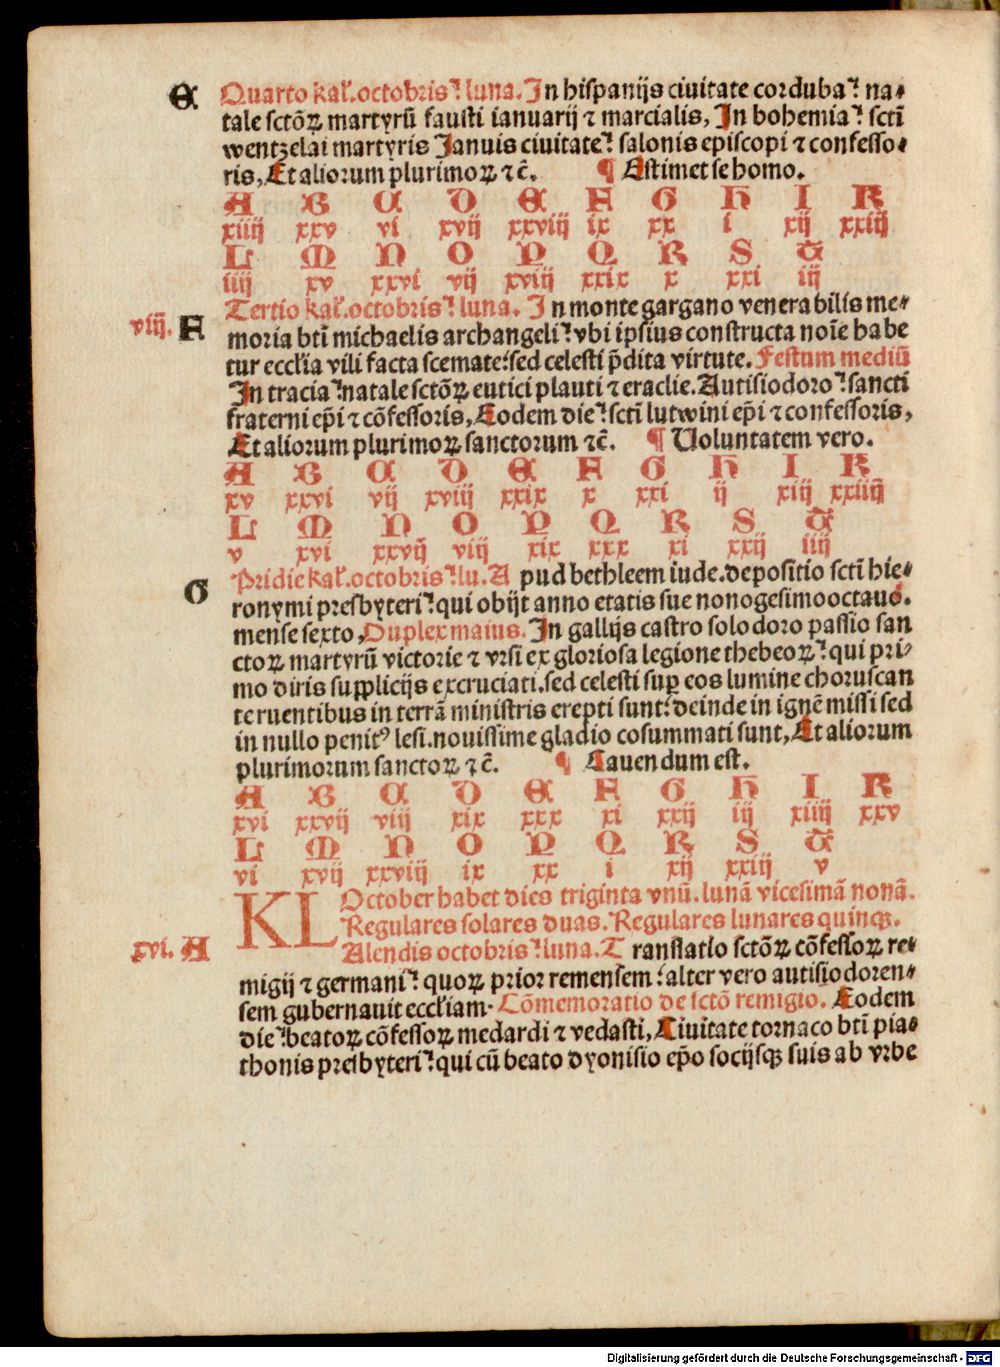 E Quarto kal̄.octobris⁊ luna. In hispanijs ciuitate corduba⁊ na⸗
tale sctōꝝ martyrū fausti ianuarij ⁊ marcialis, In bohemia⁊ sctī
wentzelai martyris Ianuis ciuitate⁊ salonis episcopi ⁊ confesso⸗
ris, Et aliorum plurimoꝝ ⁊ c̄. ¶ Estimet se homo.
A B C D E F G H I K
xiiij xxv vi xvij xxviij ix xx i xij xxiij
L M N O P Q R S T
iiij xv xxvi vij xviij xxix x xxi iij
Tertio kal̄.octobris⁊ luna. In monte gargano venerabilis me⸗
viij. F moria btī michaelis archangeli⁊ vbi ipsius constructa noīe habe
tur eccl̄ia vili facta scemate: sed celesti p̄dita virtute. Festum mediū
In tracia⁊ natale sctōꝝ eutici plauti ⁊ eraclie. Autisiodoro⁊ sancti
fraterni ep̄i ⁊ cōfessoris, Eodem die⁊ sctī lutwini ep̄i ⁊ confessoris,
Et aliorum plurimoꝝ sanctorum ⁊ c̄. ¶ Uoluntatem vero.
A B C D E F G H I K
xv xxvi vij xviij xxix x xxi ij xiij xxiiij
L M N O P Q R S T
v xvi xxvij viij xix xxx xi xxij iiij
Pridie kal̄.octobris⁊ lu. A pud bethleem iude.depositio sctī hie⸗
G ronymi presbyteri⁊ qui obijt anno etatis sue nonogesimooctauo.
mense sexto, Duplex maius. In gallijs castro solodoro passio san
ctoꝝ martyrū victorie ⁊ vrsi ex gloriosa legione thebeoꝝ⁊ qui pri⸗
mo diris supplicijs excruciati.sed celesti suꝑ eos lumine choruscan
te ruentibus in terrā ministris erepti sunt: deinde in ignē missi sed
in nullo penitꝰ lesi.nouissime gladio cosummati sunt, Et aliorum
plurimorum sanctoꝝ ⁊ c̄. ¶ Cauendum est.
A B C D E F G H I K
xvi xxvij viij xix xxx xi xxij iij xiiij xxv
L M N O P Q R S T
vi xvij xxviij ix xx i xij xxiij v
KL October habet dies triginta vnū. lunā vicesimā nonā.
Regulares solares duas. Regulares lunares quinqꝫ.
xvi. A Alendis octobris⁊ luna. T ranslatio sctōꝝ cōfessoꝝ re⸗
migij ⁊ germani⁊ quoꝝ prior remensem: alter vero autisiodoren⸗
sem gubernauit eccl̄iam. Cōmemoratio de sctō remigio. Eodem
die⁊ beatoꝝ cōfessoꝝ medardi ⁊ vedasti, Ciuitate tornaco btī pia⸗
thonis presbyteri⁊ qui cū beato dyonisio ep̄o socijsqꝫ suis ab vrbe
Digitalisierung gefördert durch die Deutsche Forschungsgemeinschaft - DFG